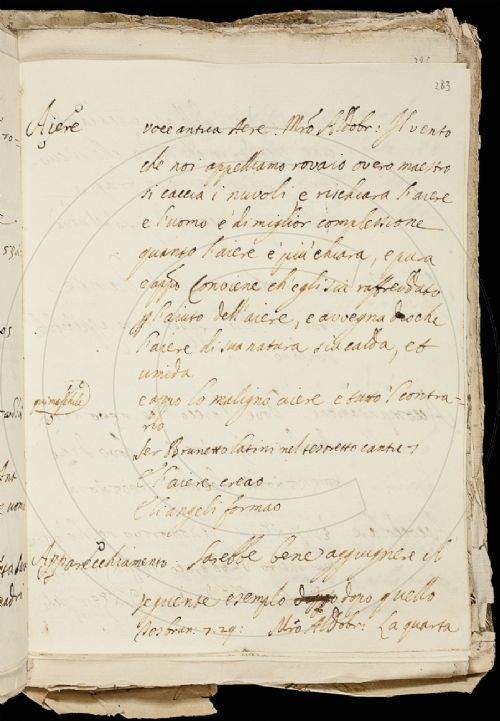 283
Aiere voce antica Aere. Mro Aldobr: Il vento
che noi appelliamo rovaio overo maestro
si caccia i nuvoli, e rischiara l'aiere
e l'uomo è di miglior complessione
quanto l'aiere è più chiara, e pura
e app.o Conviene ch'egli sia raffreddato
p l'aiuto dell'aiere, e avvegna dioche
l'aiere di sua natura sia calda, et
umida
e appo lo maligno aiere è tutto 'l contra-
rio
Ser Brunetto latini nel tesoretto cant. 5
E l'aiere creao
E li angeli formao
Apparecchiamento Sarebbe bene aggiugnere il
seguente esempio dopo quello
Mro Aldobr: La quarta